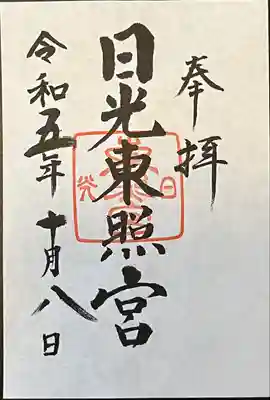 奉拝
日光東照宮
令和五年十月八日